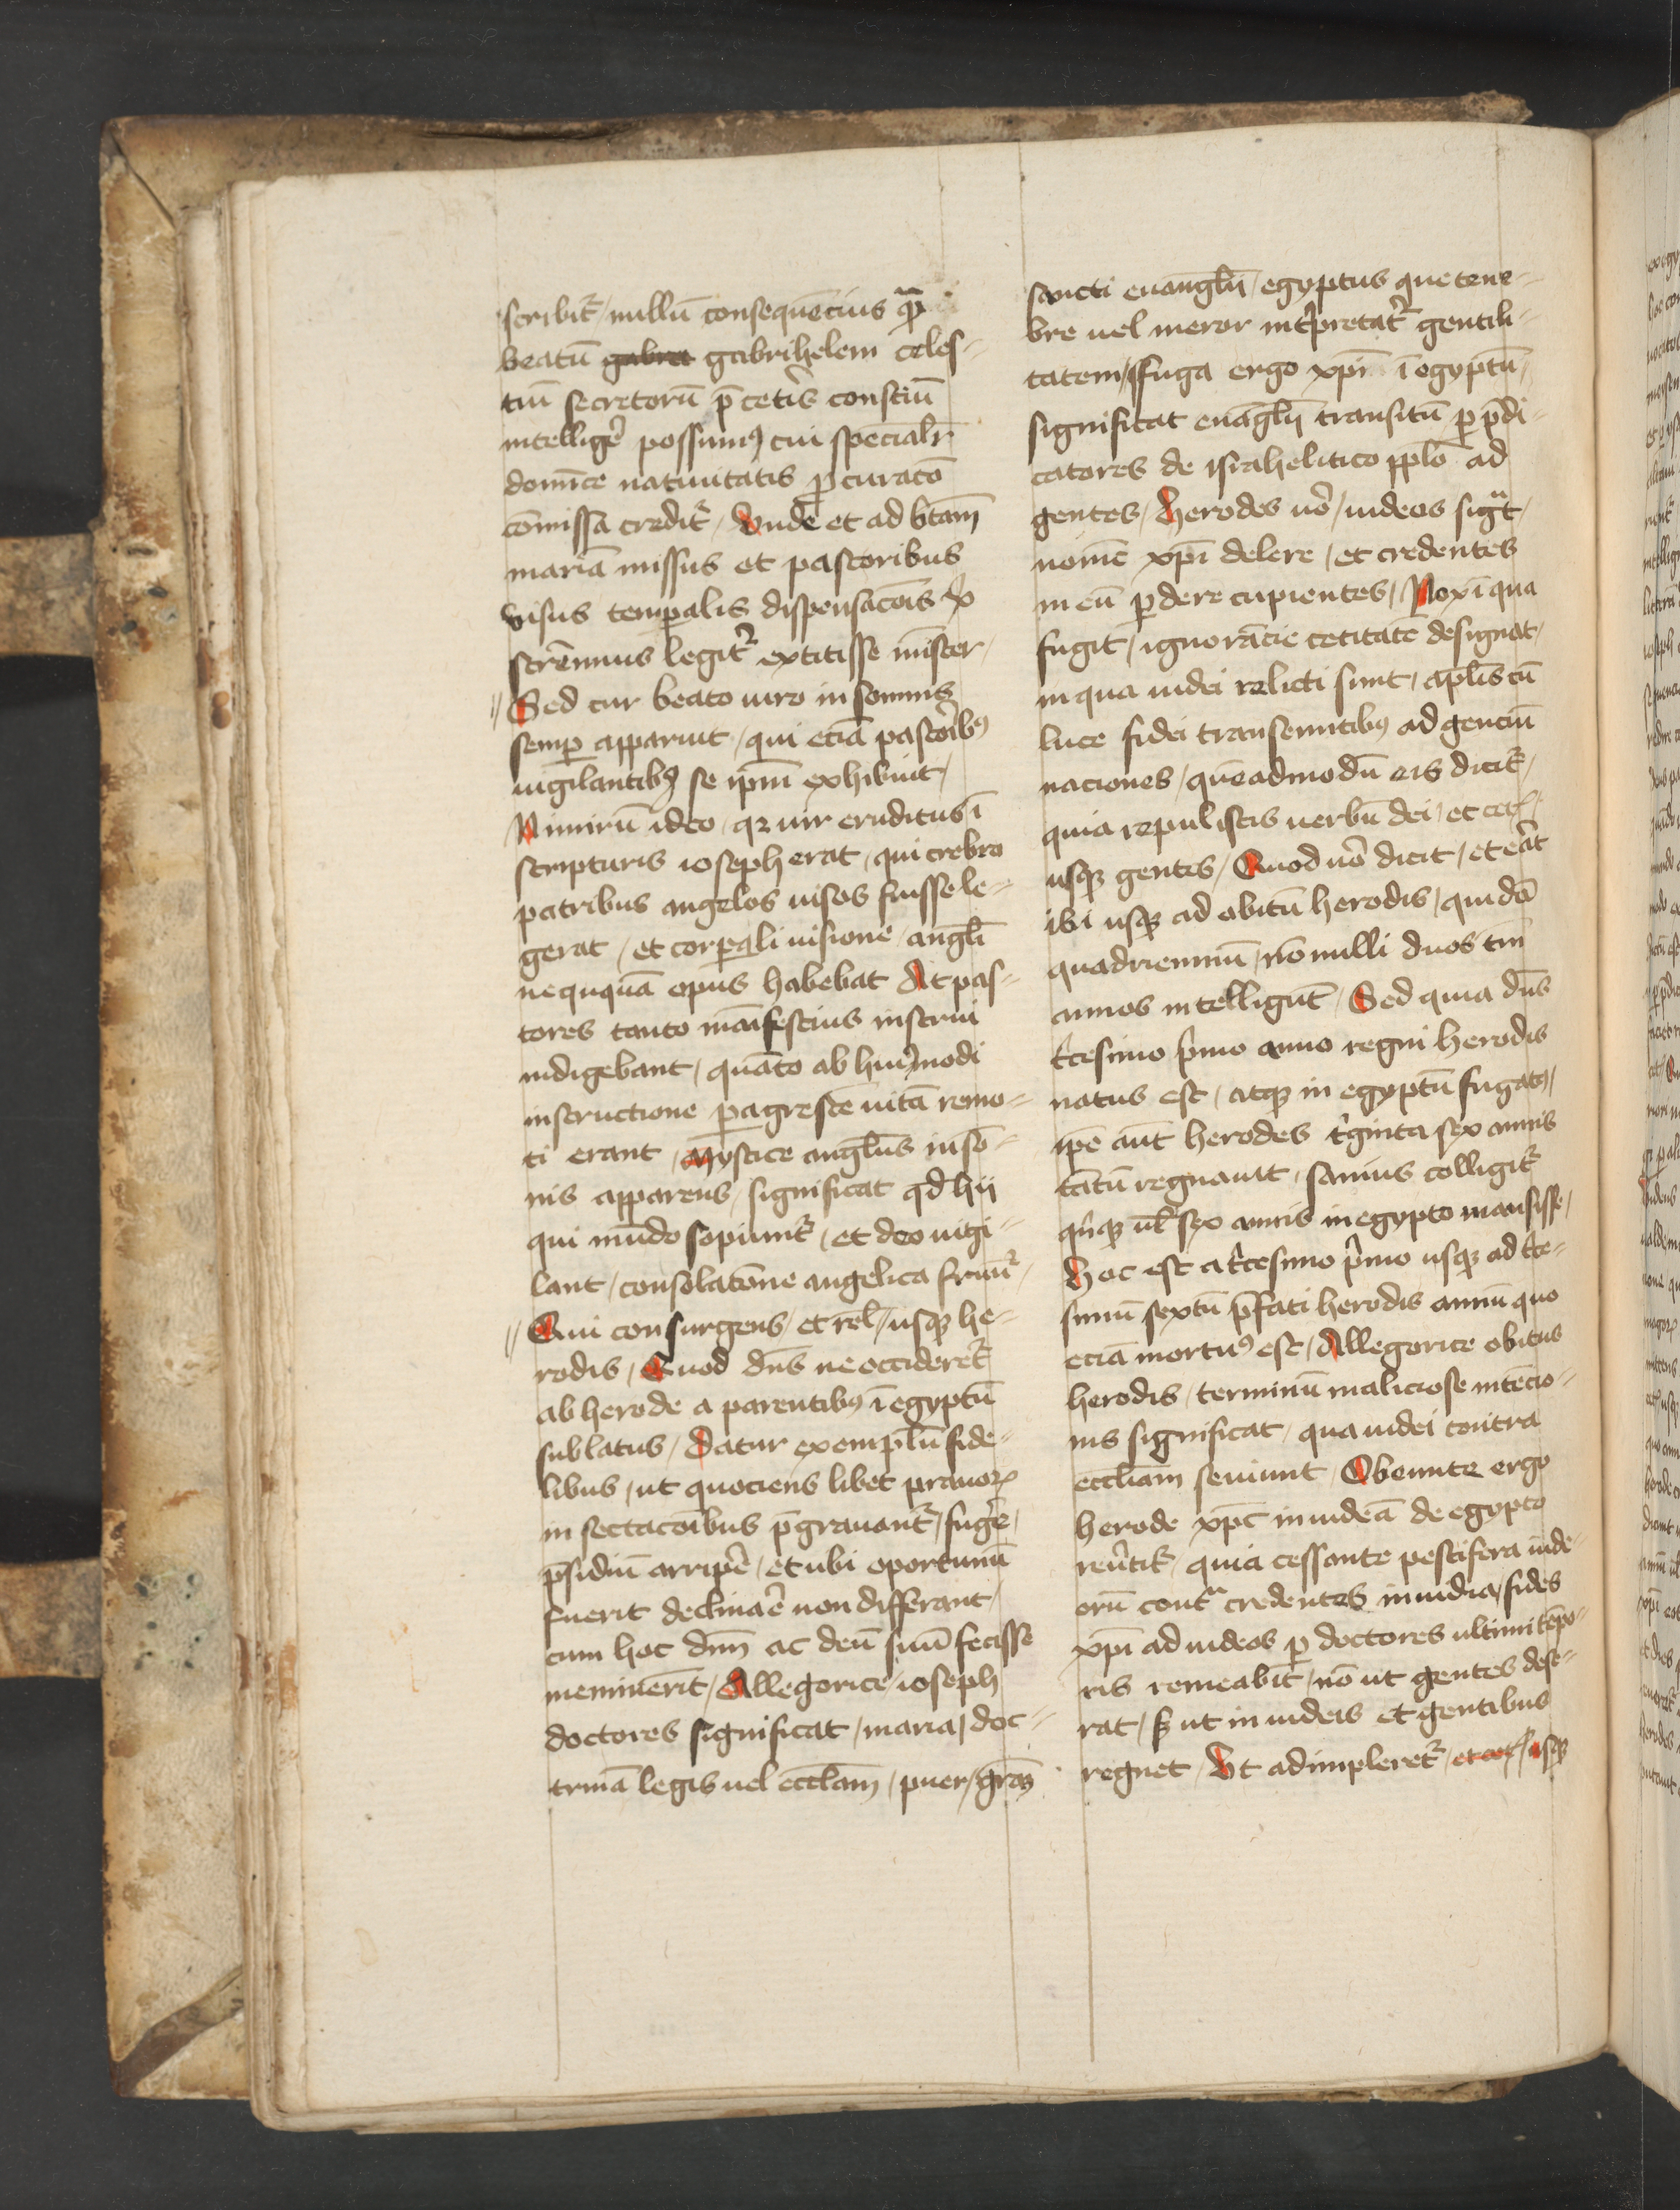 scribit᷑ / nullū consequēcius qᷓ
beatū gabra gabrihelem celes-
tiū secretorū p̄ cetis conscīu
intelligē possumꝯ cui specialr̄
domīce natiuitatis ꝓcuracō
cōmissa credit᷑ / Vnde et ad btām
mariā missus et pastoribus
visus temp̲alis dispensacōis ex
strēnuus legit᷑ extitisse mīster /
Sed cur beato uiro in somnis
semp̲ apparuit / qui eciā pastoribꝯ
uigilantibꝯ se ip̄m exhibuit /
Nimirū ideo / qꝛ uir eruditus ī
scripturis ioseph erat / qui crebro
patribus angelos uisos fuisse le-
gerat / et corp̲ali uisione / angl̄i
nequq̄uā opus habebat At pas-
tores tanto mānifestius instrui
indigebant / quāto ab huiꝯmodi
instructione p̲ agrestē uitā remo-
ti erant / mystice angl̄us in sō-
nis apparens / significat qd hii
qui mūdo sopiunt᷑ / et deo uigi-
lant / consolatōne angelica fruūt᷑ /
Qui consurgens / et rel̄ / usqꝫ he-
rodis / Quod dn̄s ne occideret᷑
ab herode a parentibꝯ ī egyptū
sublatus / Datur exemplū fide-
libus / ut quociens libet prauoꝝ
insectacōibus p̄grauant᷑ / fugē /
p̄sidiū arripē / et ubi oportunū
fuerit declināe non differant /
cum hoc dn̄m ac deū suū fecisse
meminerīt / Allegorice / ioseph
doctores significat / maria / doc-
trinā legis uel eccl̄am / puer / grām
sancti euangl̄ij / egyptus que tene-
bre uel meror int̄pretat᷑ gentili-
tatem / ffuga ergo xp̄i ī egyptū /
significat euāgl̄ij transitū p̲ p̄di-
catores de israhelitico ppl̄o ad
gentes / Herodes uō / iudeos sigᷓt /
nomē xp̄i delere / et credentes
in eū p̲dere cupientes / Nox ī qua
fugit / ignorācie cecitatē designat /
in qua iudei relicti sunt / apl̄is cū
luce fidei transeuntibꝯ ad genciū
naciones / quēadmodū eis dicit᷑ /
quia repulistis uerbū dei / et cetꝭ /
usqꝫ gentes / Quod uō dicit / et eāt
ibi usqꝫ ad obitū herodis / quidā
quadriennuū / nōnulli duos tm̄
annos intelligūt / Sed quia dn̄s
t̄cesimo p̄mo anno regni herodis
natus est / atqꝫ in egyptū fugatꝯ /
ip̄e aūt herodes t̄ginta sex annis
tātū regnauit / sanius colligit᷑
qⁱnqꝫ ul̄ sex annis in egypto mansisse /
Hoc est a t̄cesimo p̄mo usqꝫ ad t̄ce-
simū sextū p̄fati herodis annū quo
eciā mortuꝯ est / Allegorice obitus
herodis / terminū maliciose intēcio-
nis significat / qua iudei contra
eccl̄iam seuiunt / Obeunte ergo
herode xp̄c in iudeā de egypto
reūtit᷑ / quia cessante pestifera iude-
orū contᷓ credentes inuidia / fides
xp̄i ad iudeos p̲ doctores ultimi tēpo-
ris remeabit / nō ut gentes dese-
rat / sꝫ ut in iudeis et gentibus
regnet / Vt adimpleret᷑ / et cetꝭ / usqꝫ